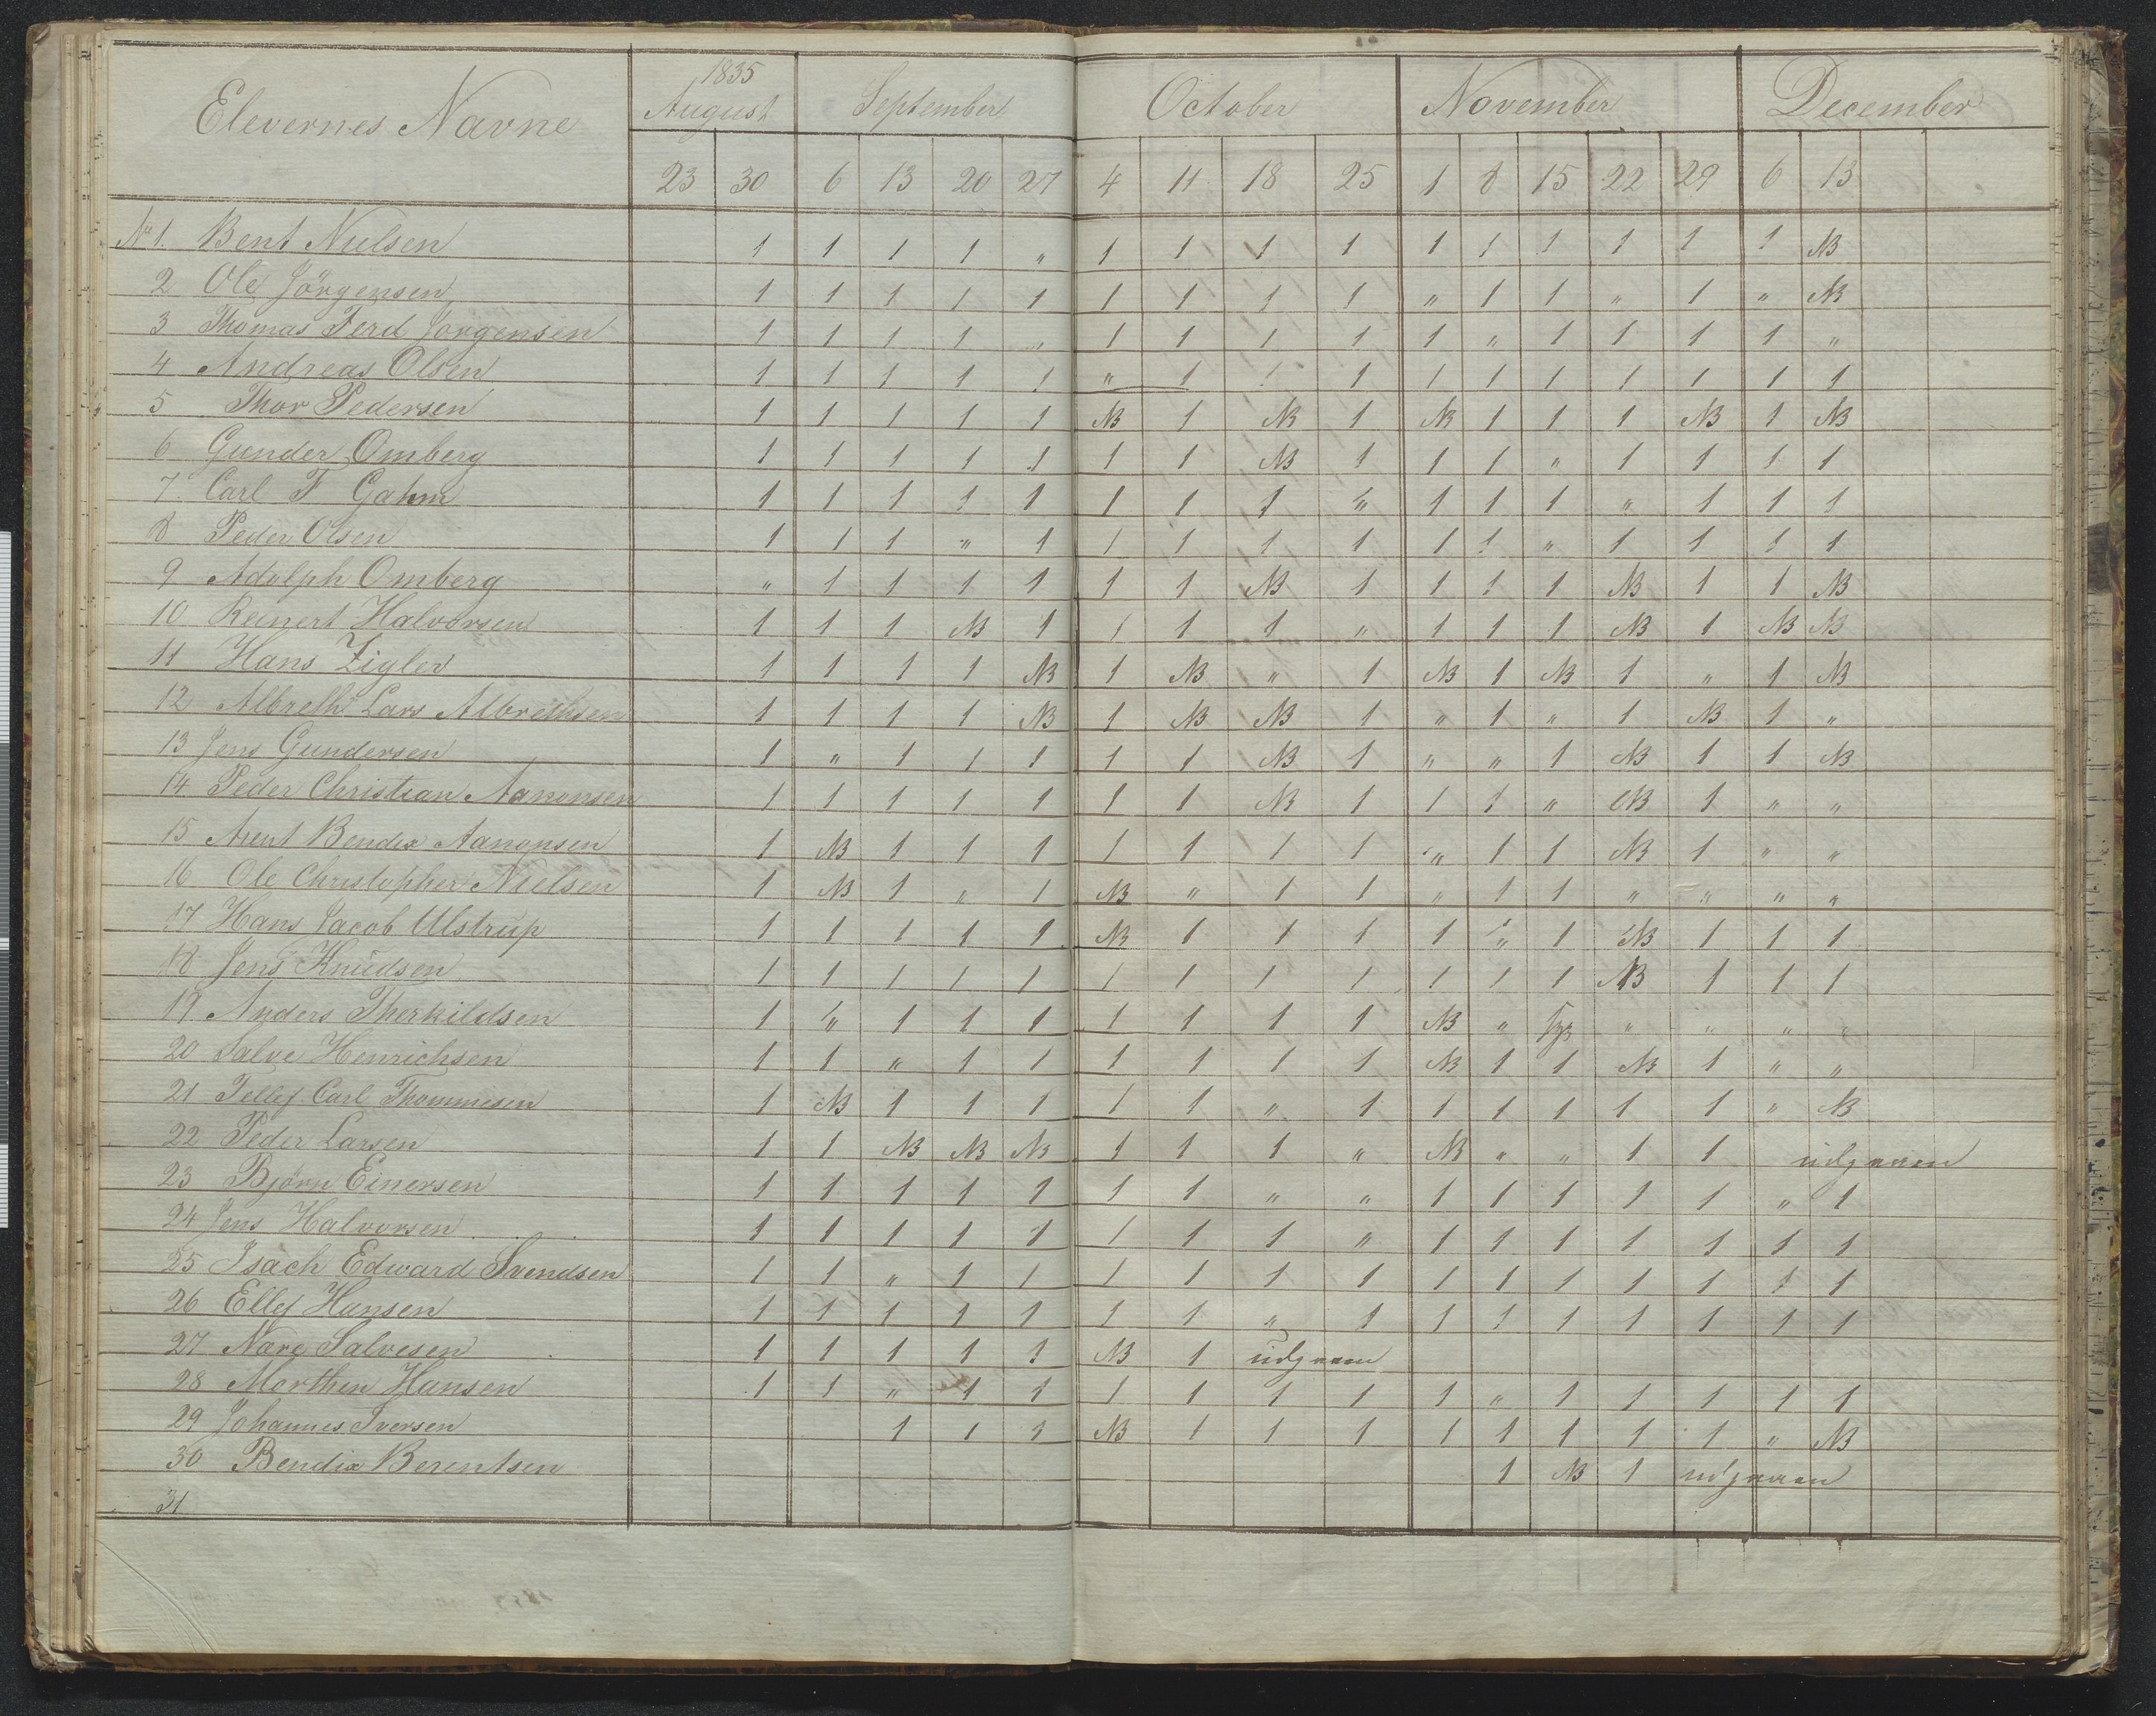 1835
Elevernes Navne August September October November December
23 30 6 13 20 27 4 11 18 25 1 8 15 22 29 6 13
No 1. Bent Nielsen 1 1 1 1 " 1 1 1 1 1 1 1 1 1 1 NB
2 Ole Jörgensen 1 1 1 1 1 1 1 1 1 " 1 1 " 1 " NB
3 Thomas Ferd Jörgensen 1 1 1 1 " 1 1 1 1 1 " 1 1 1 1 "
4 Andreas Olsen 1 1 1 1 1 " 1 1 1 1 1 1 1 1 1 1
5 Thor Pedersen 1 1 1 1 1 NB 1 NB 1 NB 1 1 1 NB 1 NB
6 Gunder Omberg 1 1 1 1 1 1 1 NB 1 1 1 " 1 1 1 1
7 Carl F Gahm 1 1 1 1 1 1 1 1 " 1 1 1 " 1 1 1
8 Peder Olsen 1 1 1 " 1 1 1 1 1 1 1 " 1 1 1 1
9 Adolph Omberg " 1 1 1 1 1 1 NB 1 1 1 1 NB 1 1 NB
10 Reinert Halvorsen 1 1 1 NB 1 1 1 1 " 1 1 1 NB 1 NB NB
11 Hans Zigler 1 1 1 1 NB 1 NB " 1 NB 1 NB 1 " 1 NB
12 Albreth Lars Albrethsen 1 1 1 1 NB 1 NB NB 1 " 1 " 1 NB 1 "
13 Jens Gundersen 1 " 1 1 1 1 1 NB 1 " " 1 NB 1 1 NB
14 Peder Christian Aanonsen 1 1 1 1 1 1 1 NB 1 1 1 " NB 1 " "
15 Arent Bendix Aanonsen 1 NB 1 1 1 1 1 1 1 " 1 1 NB 1 " "
16 Ole Christopher Nielsen 1 NB 1 " 1 NB " 1 1 " 1 1 " " " "
17 Hans Jacob Ulstrup 1 1 1 1 1 NB 1 1 1 1 " 1 NB 1 1 1
18 Jens Knudsen 1 1 1 1 1 1 1 1 1 1 1 1 NB 1 1 1
19 Anders Therkildsen 1 " 1 1 1 1 1 1 1 NB " syg " " " "
20 Salve Henrichsen 1 1 " 1 1 1 1 1 1 NB 1 1 NB 1 " "
21 Tellef Carl Thommesen 1 NB 1 1 1 1 1 " 1 1 1 1 1 1 " NB
22 Peder Larsen 1 1 NB NB NB 1 1 1 " NB " " 1 1 udgaaen
23 Bjørn Einersen 1 1 1 1 1 1 1 " " 1 1 1 1 1 " 1
24 Jens Halvorsen 1 1 1 1 1 1 1 1 " 1 1 1 1 1 1 1
25 Isach Edward Svendsen 1 1 " 1 1 1 1 1 1 1 1 1 1 1 1 1
26 Ellef Hansen 1 1 1 1 1 1 1 " 1 1 1 1 1 1 1 1
27 Nære Salvesen 1 1 1 1 1 NB 1 udgaaen
28 Morthen Hansen 1 1 " 1 1 1 1 1 1 1 " 1 1 1 1 1
29 Johannes Iversen 1 1 1 NB 1 1 1 1 1 1 1 1 " NB
30 Bendix Berentsen 1 NB 1 udgaaen
31